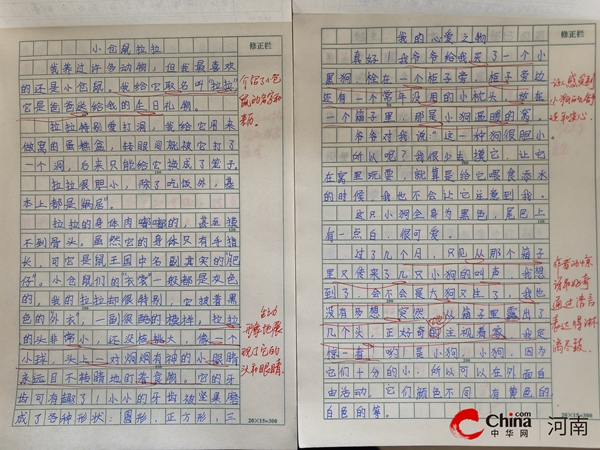 小仓鼠拉拉
修正栏
我养过许多动物，但我最喜欢
的还是小仓鼠。我给它取名叫"拉拉"
它是爸爸送给我的生日礼物。
拉拉特别爱打洞，我给它用来
做窝的蛋糕盒，转眼间就被它打了
一个洞，后来只能给它换成了笼子
拉拉很胆小，除了吃饭外，基
本上都是躲着。
拉拉的身体肉嘟嘟的，甚至摸
不到骨头，虽然它的身体只有手指
长，可它是鼠王国中名副其实的"肥
仔"。小仓鼠们的"衣裳"一般都是灰色
的，我的拉拉却很特别，它披着黑
色的"外衣"，一副很酷的模样，拉拉
的头非常小，还没核桃大，像一个
小球，头上一对炯炯有神的小眼睛
永远目不转睛地盯着食物。它的牙
齿可有趣了！小小的牙齿被坚果磨
成了各种形状：圆形，正方形，三
20×15=300
介绍了小仓
鼠的名字和
来历。
生动
形象地展
现了它的
头和眼睛
我的心爱之物
修正栏
真好！我爷爷给我买了一个小
黑狗，拴在一个柜子旁，柜子旁边
还有一个常年没用的小枕头，放在
一个箱子里，那是小狗温暖的窝。
爷爷对我说："这一种狗很胆小
所以呢？我很少去摸它，让它
在窝里玩耍，就算是给它喂食添水
的时候，我也不会让它注意到我。
这只小狗全身为黑色，尾巴上
有一点白，很可爱。
过了几个月，只见从那个箱子
里又传来了几只小狗的叫声，我想
到了，会不会是大狗又生了，我也
没有多想，突然，从箱子里露出了
几个头，正好奇的注视着我，我定
惊一看，哟！是小狗，小狗，因为
它们十分的小，所以可以在外面自
由活动。它们颜色不同，有黄色的
白色的等。
20×15=300
让人感受到
小狗的
作者
通过语言
表达得淋漓
尽致。
China.com
中华网
河南